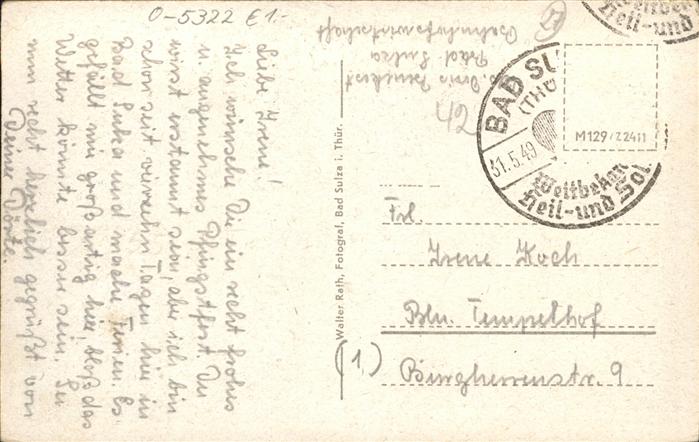 O-5322 € 1.-
Liebe Irene!
Ich wünsche Dir ein recht frohes
u. angenehmes Pfingstfest. Du
wirst erstaunt sein, aber ich bin
schon seit vierzehn Tagen hier in
Bad Sulza und mache Ferien. Es
gefällt mir großartig hier, bloß das
Wetter könnte besser sein. Sei
nun recht herzlich gegrüßt von
Deiner
Walter Rath, Fotograf, Bad Sulza i. Thür.
Bad Sulza
Bahnhofswirtschaft
42
BAD SU
(THÜ
31.5.49
Weltbekan
Heil- und Sol
Heil- und
M129/Z2411
Frl.
Irene Koch
Bln. Tempelhof
(1)
Burgherrenstr. 9